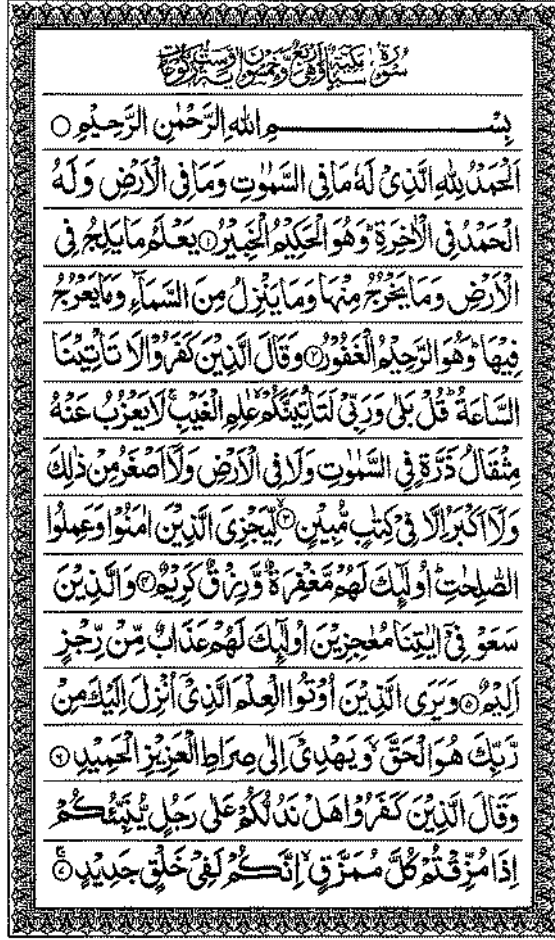 سُوْرَةُ سَبَاٍ مَّكِّيَّةٌ وَّهِيَ اَرْبَعٌ وَّخَمْسُوْنَ اٰيَةً وَّسِتُّ رُكُوْعَاتٍ
بِسْمِ اللهِ الرَّحْمٰنِ الرَّحِيْمِ ○
اَلْحَمْدُ لِلّٰهِ الَّذِىْ لَهٗ مَا فِى السَّمٰوٰتِ وَمَا فِى الْاَرْضِ وَلَهُ
الْحَمْدُ فِى الْاٰخِرَةِ ؕ وَهُوَ الْحَكِيْمُ الْخَبِيْرُ ۝۱ يَعْلَمُ مَا يَلِجُ فِى
الْاَرْضِ وَمَا يَخْرُجُ مِنْهَا وَمَا يَنْزِلُ مِنَ السَّمَآءِ وَمَا يَعْرُجُ
فِيْهَا ؕ وَهُوَ الرَّحِيْمُ الْغَفُوْرُ ۝۲ وَقَالَ الَّذِيْنَ كَفَرُوْا لَا تَاْتِيْنَا
السَّاعَةُ ؕ قُلْ بَلٰى وَرَبِّىْ لَتَاْتِيَنَّكُمْ ۙ عٰلِمِ الْغَيْبِ ۚ لَا يَعْزُبُ عَنْهُ
مِثْقَالُ ذَرَّةٍ فِى السَّمٰوٰتِ وَلَا فِى الْاَرْضِ وَلَاۤ اَصْغَرُ مِنْ ذٰلِكَ
وَلَاۤ اَكْبَرُ اِلَّا فِىْ كِتٰبٍ مُّبِيْنٍ ۝۳ لِّيَجْزِىَ الَّذِيْنَ اٰمَنُوْا وَعَمِلُوا
الصّٰلِحٰتِ ؕ اُولٰٓئِكَ لَهُمْ مَّغْفِرَةٌ وَّرِزْقٌ كَرِيْمٌ ۝۴ وَالَّذِيْنَ
سَعَوْ فِىْۤ اٰيٰتِنَا مُعٰجِزِيْنَ اُولٰٓئِكَ لَهُمْ عَذَابٌ مِّنْ رِّجْزٍ
اَلِيْمٌ ۝۵ وَيَرَى الَّذِيْنَ اُوْتُوا الْعِلْمَ الَّذِىْۤ اُنْزِلَ اِلَيْكَ مِنْ
رَّبِّكَ هُوَ الْحَقَّ ۙ وَيَهْدِىْۤ اِلٰى صِرَاطِ الْعَزِيْزِ الْحَمِيْدِ ۝۶
وَقَالَ الَّذِيْنَ كَفَرُوْا هَلْ نَدُلُّكُمْ عَلٰى رَجُلٍ يُّنَبِّئُكُمْ
اِذَا مُزِّقْتُمْ كُلَّ مُمَزَّقٍ ۙ اِنَّكُمْ لَفِىْ خَلْقٍ جَدِيْدٍ ۝۷